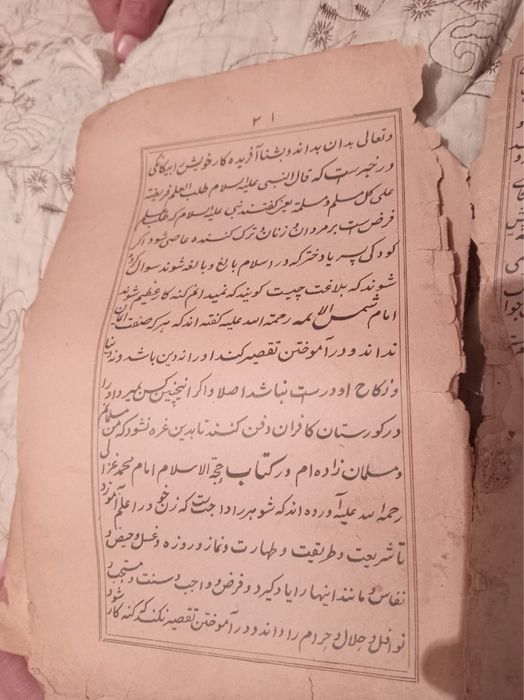 ٢١
وتعالی بدان بداند و بشنا آفریده کار خویش را بیکانکی
و رخبرست که قال النبی علیه السلام طلب العلم فریضة
علی کل مسلم ومسلمة یعنی کفتند نبی علیه السلام که طلب علم
فرض ست بر مردان و زنان و ترک کننده عاصی شود اکر
کودکی پسر یا دختر که در اسلام بالغ و بالغه شوند سوال کرده
شوند که بلاغت چیست کویند که نمیدانم کنه کار عظیم شوند
امام شمس الائمه رحمة الله علیه کفته اند که هر که صفت ایمان
نداند و در آموختن تقصیر کند اورا نه دین باشد و نه دنیا
و نکاح او درست نباشد اصلا و اکر اینچنین کس بمیرد او را
در کورستان کافران دفن کنند تا بدین غره نشود که من مسلمانم
و مسلمان زاده ام و در کتاب حجة الاسلام امام محمد غزالی
رحمة الله علیه آورده اند که شوهر را واجبت که زن خود را علم آموزد
تا شریعت و طریقت و طهارت و نماز و روزه و غسل و حیض و
نفاس و مانند اینها را یاد کیرد و فرض و واجب و سنت و مستحب و
نوافل و حلال و حرام را داند و در آموختن تقصیر نکند که کنه کار شود